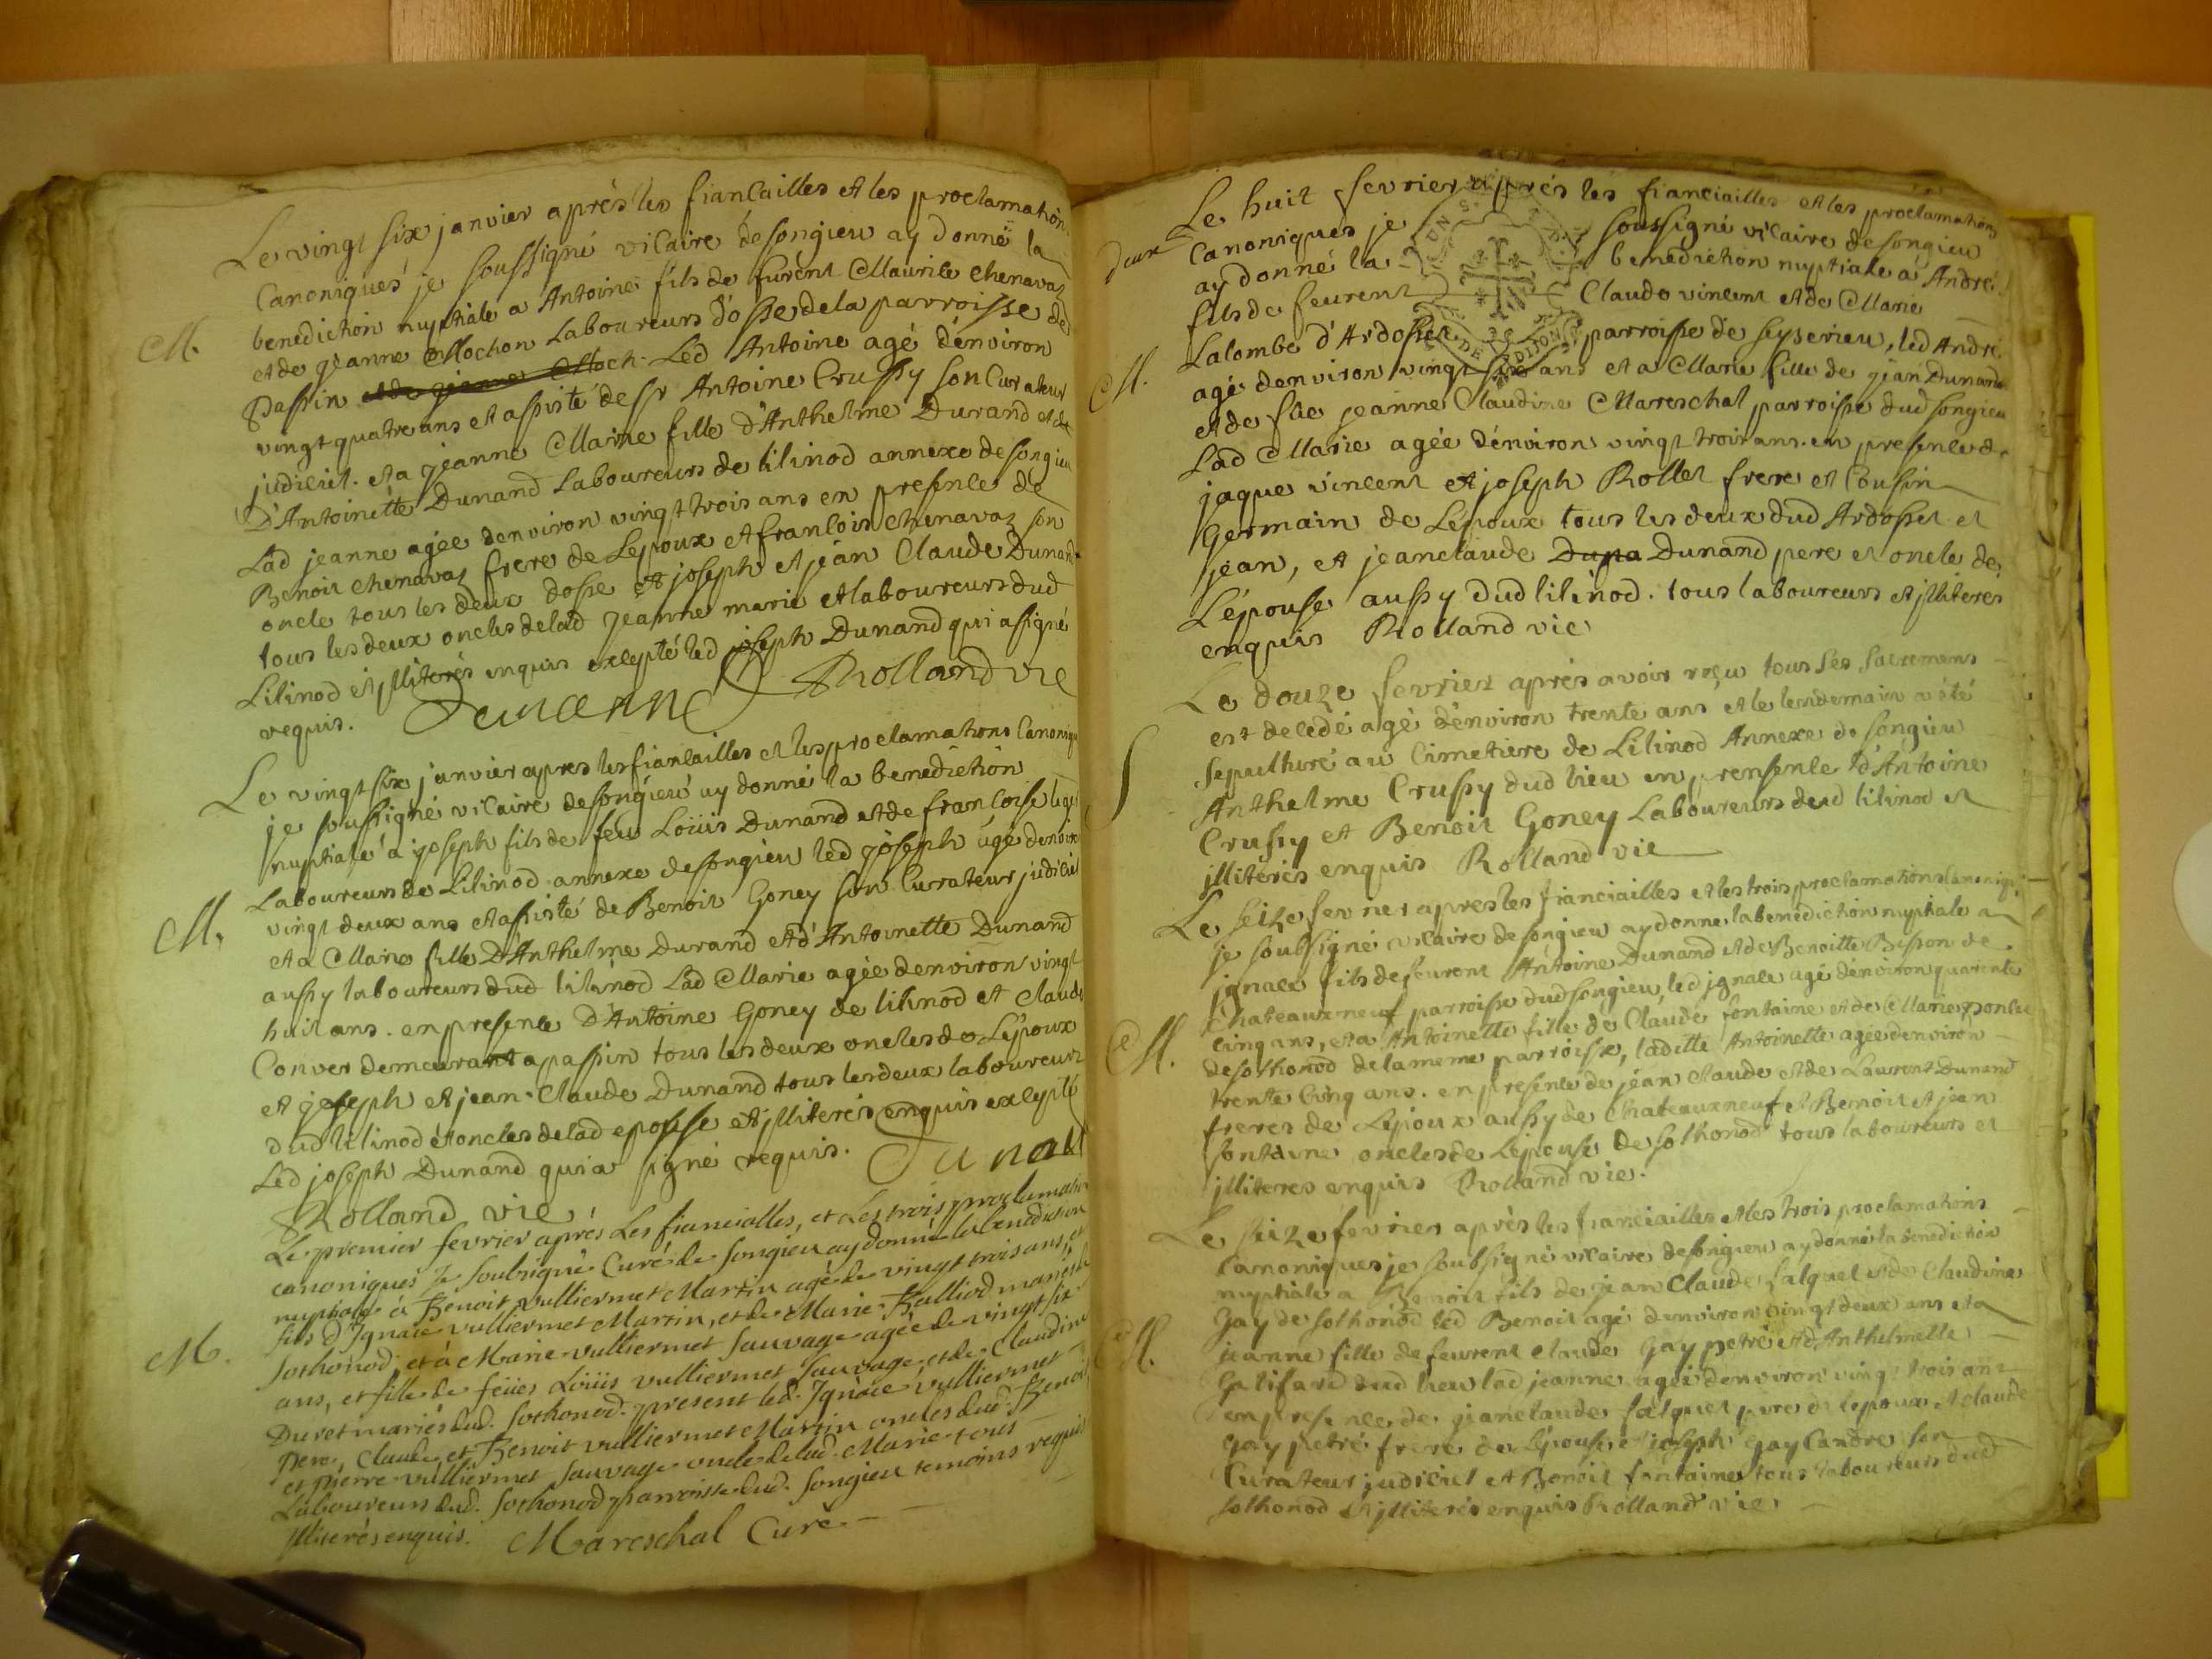 Le vingt six janvier aprés les fiancailles et les proclamations
Canoniques je soussigné vicaire de songieu ay donné la
M.
benediction nuptiale a Antoine fils de furent Maurile Chenavaz
et de jeanne Mochon Laboureurs d'osse de la parroisse de
passin et de jeanne Moch. Led Antoine agé d'environ
vingt quatre ans et assisté de sr Antoine Crussy son Curateur
judiciel. et a jeanne Marie fille d'Anthelme Durand et de
D'Antoinette Dunand Laboureurs de lilinod annexe de songieu
Lad jeanne agée d'environ vingt trois ans en presence de
Benoit Chenavaz frere de Lepoux et francois Chenavaz son
oncle tous les deux dosse et joseph et jean Claude Dunand
tous les deux oncles de lad jeanne marie et laboureurs dud
Lilinod et jlliterés enquis excepté led joseph Dunand qui a signé
requis. Rolland vic
Le vingt six janvier apres les fiancailles et les proclamations Canoniqu
je soussigné vicaire de songieu ay donné la benediction
nuptiale a joseph fils de feu Loüis Dunand et de francoise
Laboureurs de Lilinod annexe de songieu led joseph agé denviron
M.
vingt deux ans et assisté de Benoit Goney son Curateur judiciel
et a Marie fille D'Anthelme Durand et d'Antoinette Dunand
aussy laboureurs dud lilinod Lad Marie agée denviron vingt
huit ans. en presence D'Antoine Goney de lilinod et Claude
Conver demeurant a passin tous les deux oncles de Lépoux
et joseph et jean Claude Dunand tous les deux laboureurs
dud lilinod et oncles de lad epouse et jlliterés enquis excepté
Led joseph Dunand qui a signé requis. Dunand
Rolland vic
Le premier fevrier aprés Les fiancialles, et Les trois proclamations
canoniques Je soubsigné Curé de songieu ay donné la benediction
nuptiale à Benoit vulliermet Martin agé de vingt trois ans, et
fils d'Ignace vulliermet Martin, et de Marie Balliod mariés de
M.
sothonod, et à Marie vulliermet sauvage agée de vingt six
ans, et fille de feües Loüis vulliermet sauvage et de Claudine
Duret mariés dud. sothonod. present led. Ignace vulliermet
pere, Claude et Benoit vulliermet Martin oncles dud. Benoit
et pierre vulliermet sauvage oncle de lad. Marie tous
Laboureurs dud. sothonod parroisse dud. songieu temoins requis
Illiterés enquis. Mareschal Curé
Le huit fevrier aprés les fianciailles et les proclamations
Canoniques je soussigné vicaire de songieu
ay donné la benediction nuptiale a André
fils de feurent Claude vincent et de Marie
Lalombe d'Ardosset parroisse de seyserieu, led André
M.
agé denviron vingt six ans et a Marie fille de jean Dunand
et de feüe jeanne Claudine Mareschal parroisse dud songieu
Lad Marie agée d'environ vingt trois ans. en presence de
jaque vincent et joseph Rollet frere et Cousin
Germain de Lépoux tous les deux dud Ardosset et
jean, et jeanclaude Duna Dunand pere et oncle de
L'épouse aussy dud lilinod. tous laboureurs et jlliterés
enquis Rolland vic
Le douze fevrier aprés avoir reçu tous ses sacremens
est decedé agé d'environ trente ans et le lendemain a été
S
sepulturé au Cimetiere de Lilinod Annexe de songieu
Anthelme Crussy dud lieu en prensence d'Antoine
Crussy et Benoit Goney Laboureurs dud lilinod et
jlliterés enquis Rolland vic
Le seize fevrier apres les fianciailles et les trois proclamations canoniqu
je soubsigné vicaire de songieu ay donne la benediction nuptiale a
jgnace fils de feurent Antoine Dunand et de Benoitte Bisson de
Chateauxneuf parroisse dud songieu, led jgnace agé d'environ quarente
M.
cinq ans, et a Antoinette fille de Claude fontaine et de Marie
de sothonod de la meme parroisse, laditte Antoinette agée denviron
trente cinq ans. en presence de jean claude et de Laurent Dunand
freres de Lépoux aussy de Chateauxneuf et Benoit et jean
fontaine oncles de Lépouse de sothonod tous laboureurs et
jlliteres enquis Rolland vic.
Le seize fevrier aprés les fianciailles et les trois proclamations
Canoniques je soubsigné vicaire de songieu ay donné la benediction
nuptiale a Benoit fils de jean Claude falquet et de Claudine
Gay de sothonod led Benoit agé denviron vingt deux ans et a
M.
jeanne fille de feurent claude Gay petré et d'Anthelmette
Galifard dud lieu lad jeanne agée denviron vingt trois ans
en presence de jeanclaude falquet pere de lepoux et claude
Gay petré frere de Lépouse et joseph Gay Candre son
Curateur judiciel et Benoit fontaine tous laboureurs dud
sothonod et jlliterés enquis Rolland vic